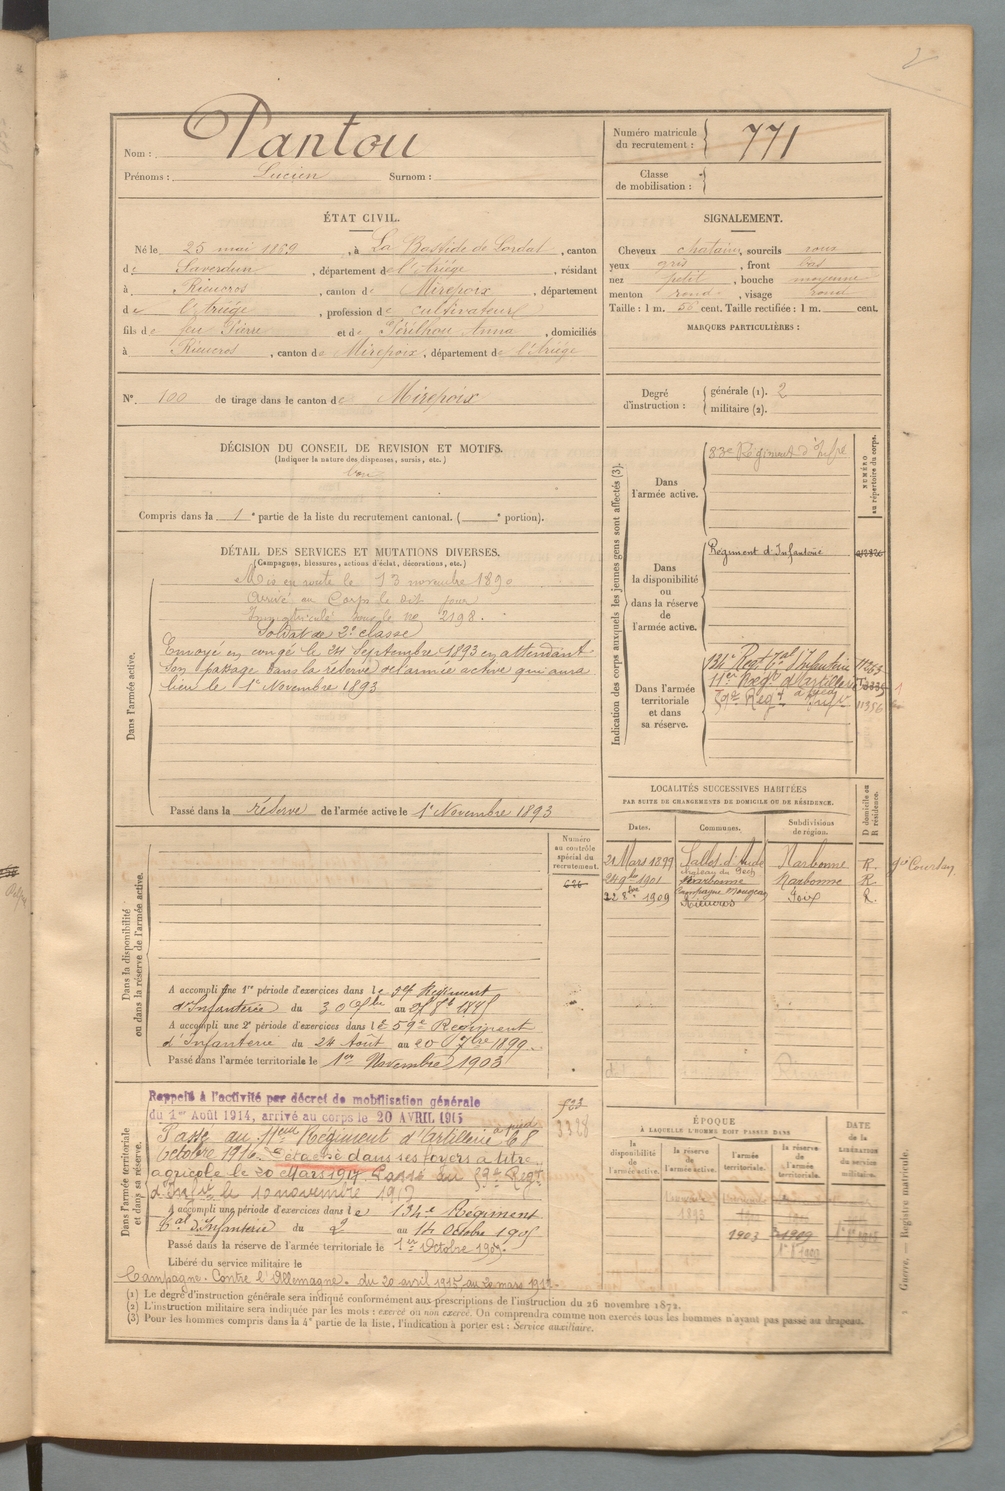 Nom : Pantou
Prénoms : Lucien Surnom :
Numéro matricule du recrutement : 771
Classe de mobilisation :
ÉTAT CIVIL.
Né le 25 mai 1869, à La Bastide de Lordat, canton
de Saverdun, département de l'Ariége, résidant
à Rieucros, canton de Mirepoix, département
de l'Ariége, profession de cultivateur
fils de feu Pierre et de Périlhou Anna, domiciliés
à Rieucros, canton de Mirepoix, département de l'Ariége
SIGNALEMENT.
Cheveux chatains, sourcils roux
yeux gris, front bas
nez petit, bouche moyenne
menton rond, visage rond
Taille : 1 m. 55 cent. Taille rectifiée : 1 m. cent.
MARQUES PARTICULIÈRES :
N° 100 de tirage dans le canton de Mirepoix
Degré d'instruction : générale (1). 2
militaire (2).
DÉCISION DU CONSEIL DE REVISION ET MOTIFS.
(Indiquer la nature des dispenses, sursis, etc.)
bon
Compris dans la 1e partie de la liste du recrutement cantonal. ( e portion).
DÉTAIL DES SERVICES ET MUTATIONS DIVERSES.
(Campagnes, blessures, actions d'éclat, décorations, etc.)
Dans l'armée active.
Mis en route le 13 novembre 1890
Arrivé au Corps le dit jour
Immatriculé sous le no 2198.
Soldat de 2e classe
Envoyé en congé le 24 Septembre 1893 en attendant
son passage dans la réserve de l'armée active qui aura
lieu le 1er Novembre 1893
Passé dans la réserve de l'armée active le 1er Novembre 1893
Indication des corps auxquels les jeunes gens sont affectés (3).
NUMÉRO au répertoire du corps.
Dans l'armée active.
83e Régiment d'Infrie
Dans la disponibilité ou dans la réserve de l'armée active.
Régiment d'Infanterie
Dans l'armée territoriale et dans sa réserve.
134e Regt tal d'Infanterie
11e Regt d'Artillerie à pied
59e Regt d'Infie 11356
LOCALITÉS SUCCESSIVES HABITÉES
PAR SUITE DE CHANGEMENTS DE DOMICILE OU DE RÉSIDENCE.
Dates. Communes. Subdivisions de région. D domicile ou R résidence.
21 Mars 1899 Salles d'Aude Narbonne R. Coursan
24 9bre 1901 Narbonne Narbonne R.
22 8bre 1909 Rieucros Foix R.
Dans la disponibilité ou dans la réserve de l'armée active.
Numéro au contrôle spécial du recrutement.
A accompli une 1re période d'exercices dans le 59e Régiment
d'Infanterie du 30 7bre au
A accompli une 2e période d'exercices dans le 59e Régiment
d'Infanterie du 24 Août au 20 7bre 1899.
Passé dans l'armée territoriale le 1er Novembre 1903
Dans l'armée territoriale et dans sa réserve.
Rappelé à l'activité par décret de mobilisation générale
du 1er Août 1914, arrivé au corps le 20 AVRIL 1915
Passé au 11eme Régiment d'Artillerie à pied le 8
Octobre 1916. Détaché dans ses foyers à titre
agricole le 20 Mars 1917 Passé au 59e Regt
d'Infie le 10 novembre 1917
3328
A accompli une période d'exercices dans le 134e Régiment
tal d'Infanterie du 2 au 14 Octobre 1905
Passé dans la réserve de l'armée territoriale le 1er Octobre 1909.
Libéré du service militaire le
Campagne. Contre l'Allemagne. du 20 avril 1915, au 20 mars 1917.
ÉPOQUE
À LAQUELLE L'HOMME DOIT PASSER DANS
la disponibilité de l'armée active. la réserve de l'armée active. l'armée territoriale. la réserve de l'armée territoriale.
DATE de la LIBÉRATION du service militaire.
1893
1903 1909
(1) Le degré d'instruction générale sera indiqué conformément aux prescriptions de l'instruction du 26 novembre 1872.
(2) L'instruction militaire sera indiquée par les mots : exercé ou non exercé. On comprendra comme non exercés tous les hommes n'ayant pas passé au drapeau.
(3) Pour les hommes compris dans la 4e partie de la liste, l'indication à porter est : Service auxiliaire.
Guerre. — Registre matricule.